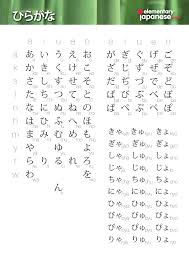 ひらがな
elementary
japanese
あ い う え お
か き く け こ
さ し す せ そ
た ち つ て と
な に ぬ ね の
は ひ ふ へ ほ
ま み む め も
や ゆ よ
ら り る れ ろ
わ を
ん
が ぎ ぐ げ ご
ざ じ ず ぜ ぞ
だ ぢ づ で ど
ば び ぶ べ ぼ
ぱ ぴ ぷ ぺ ぽ
きゃ きゅ きょ
しゃ しゅ しょ
ちゃ ちゅ ちょ
にゃ にゅ にょ
ひゃ ひゅ ひょ
みゃ みゅ みょ
りゃ りゅ りょ
ぎゃ ぎゅ ぎょ
じゃ じゅ じょ
びゃ びゅ びょ
ぴゃ ぴゅ ぴょ